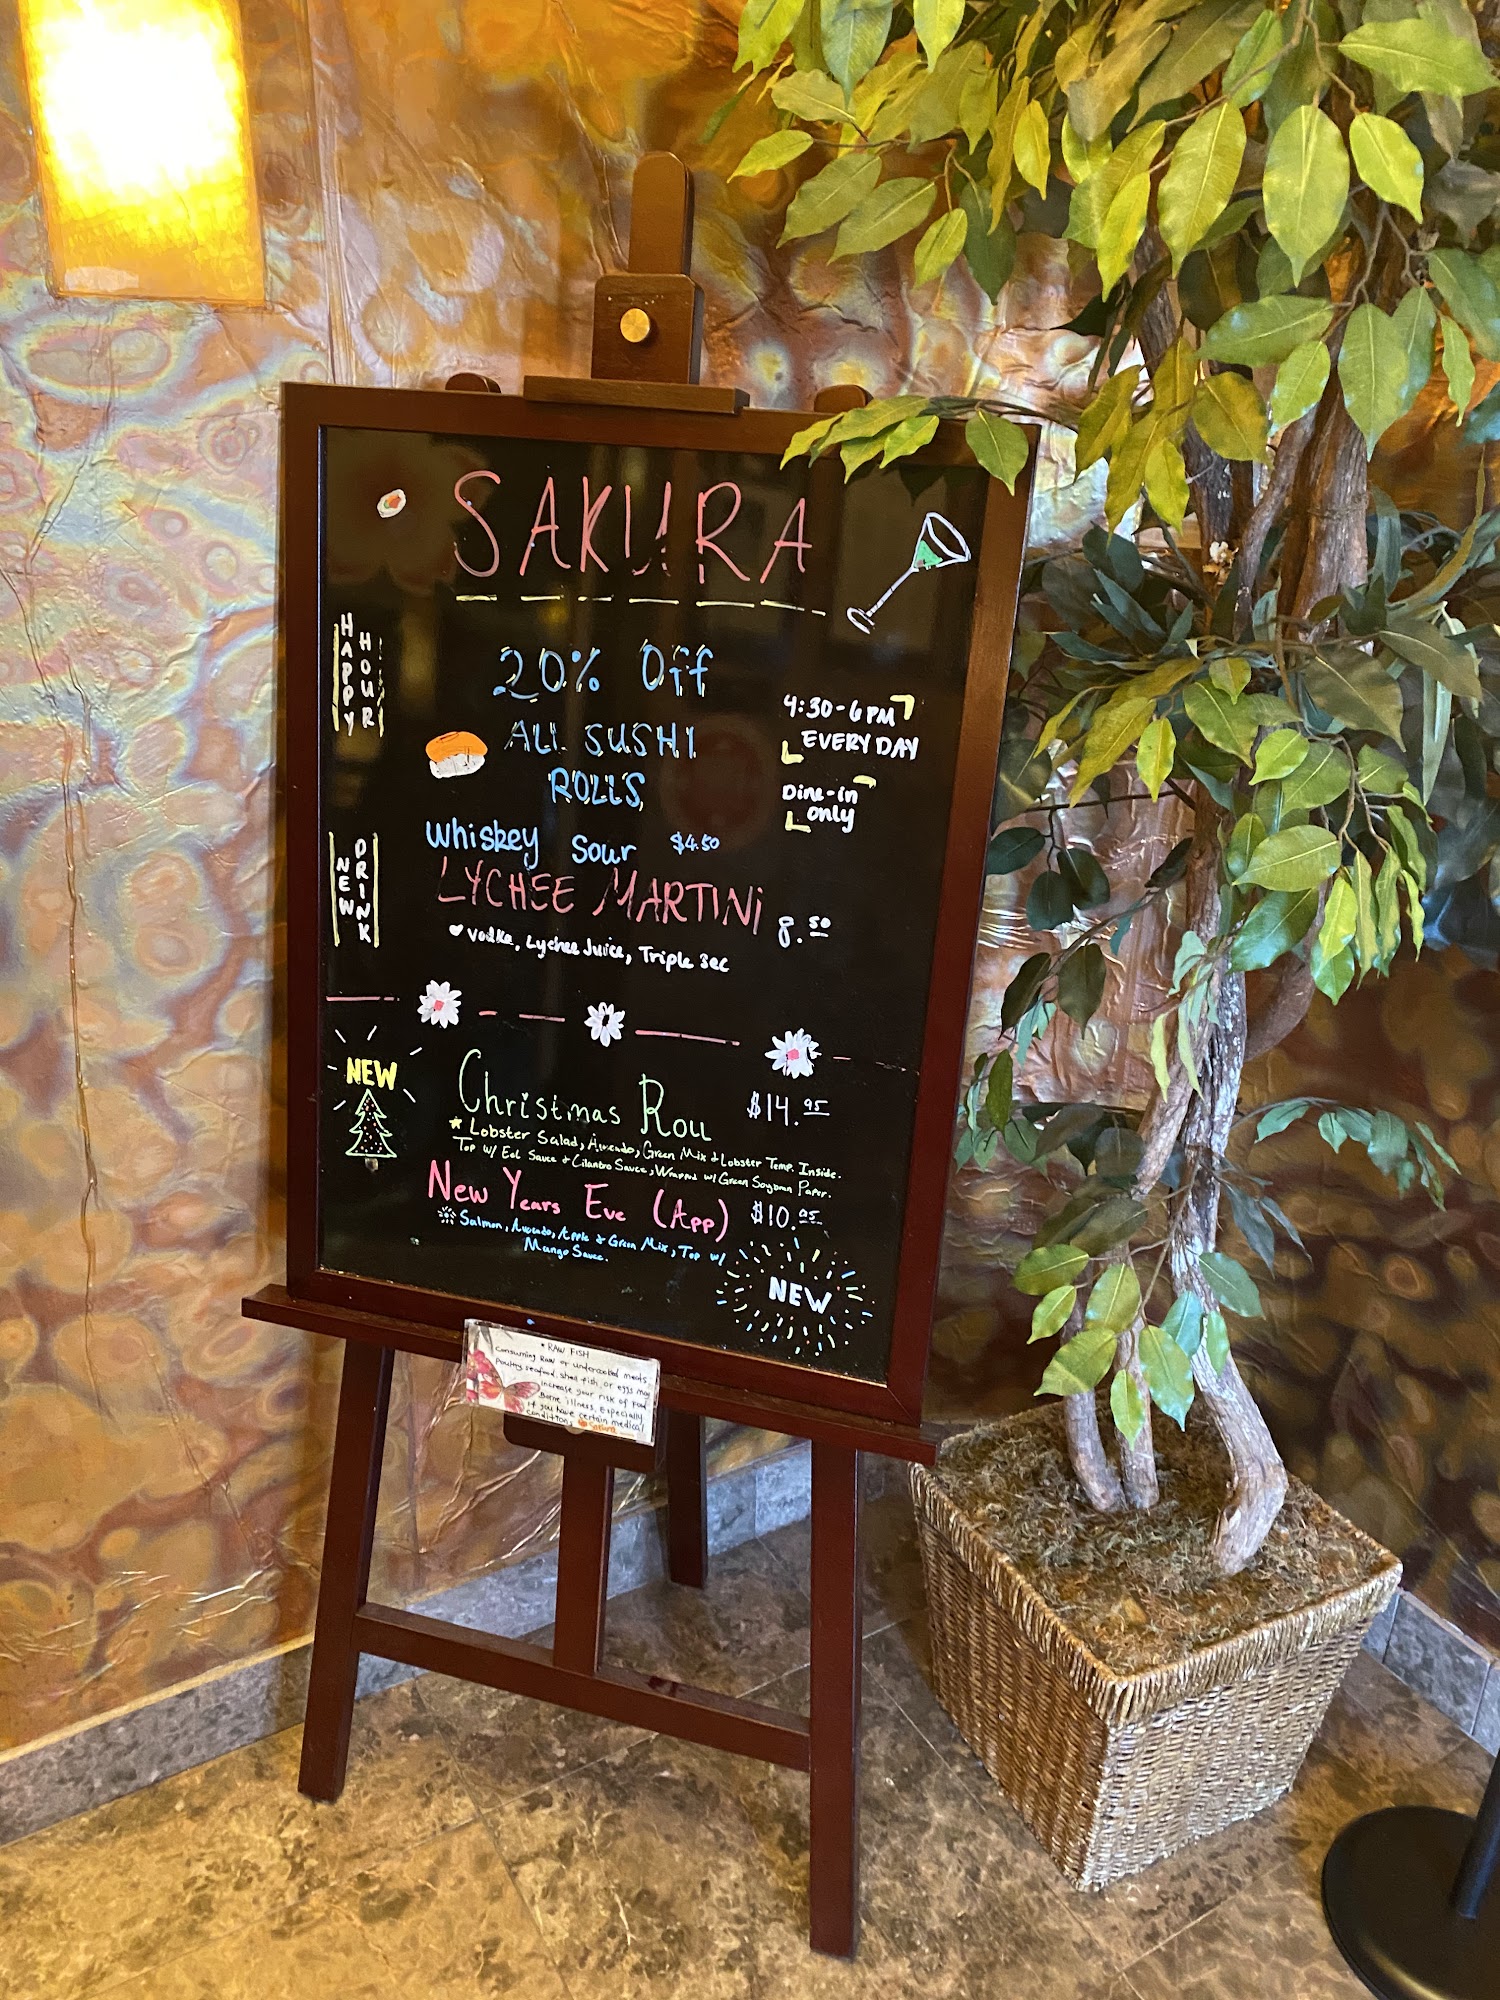 SAKURA
HAPPY HOUR
20% Off
ALL SUSHI
ROLLS
4:30-6PM
EVERYDAY
Dine-in
only
Whiskey Sour $4.50
NEW DRINK
LYCHEE MARTINI 8.50
Vodka, Lychee Juice, Triple Sec
NEW
Christmas Roll $14.95
Lobster Salad, Avocado, Green Mix & Lobster Temp. Inside.
Top w/ Eel Sauce & Cilantro Sauce, Wrapped w/ Green Soybean Paper.
New Years Eve (App) $10.95
Salmon, Avocado, Apple & Green Mix, Top w/
Mango Sauce.
NEW
* RAW FISH
Consuming Raw or undercooked meats,
Poultry, seafood, shell fish, or eggs may
increase your risk of food
Borne illness, Especially
if you have certain medical
conditions Sakura